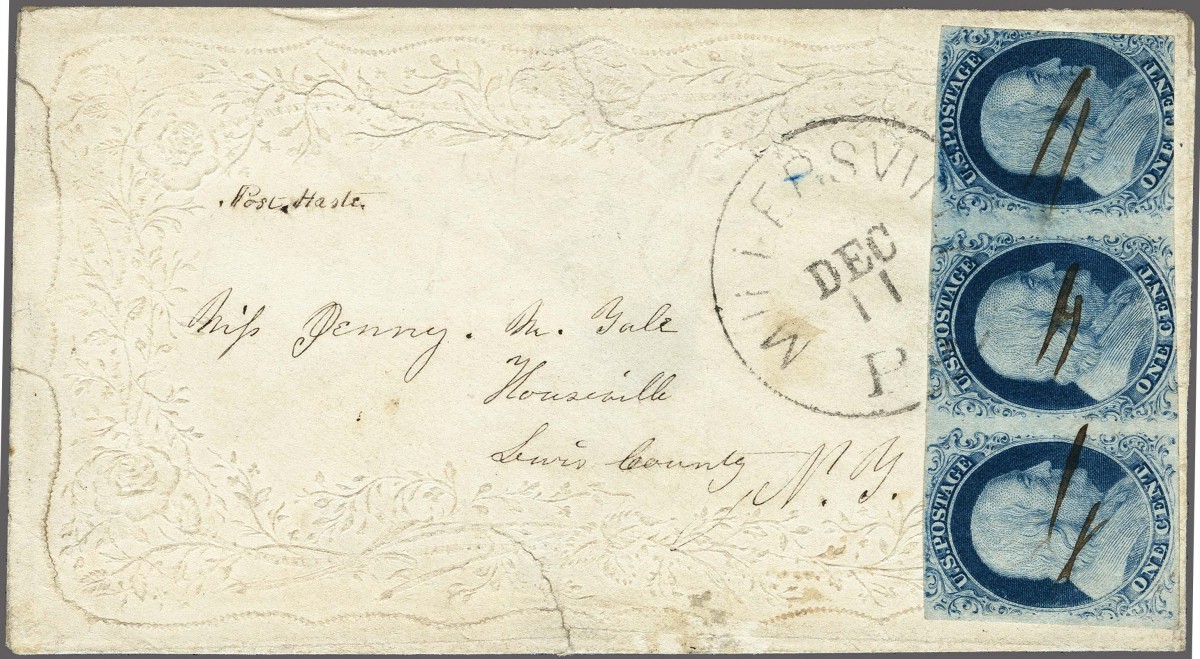 Post Haste.
Miss Jenny. M. Yale
Houseville
Lewis County
N. Y.
MILLERSVIL
DEC
11
P
U.S. POSTAGE
ONE CENT
U.S. POSTAGE
ONE CENT
U.S. POSTAGE
ONE CENT